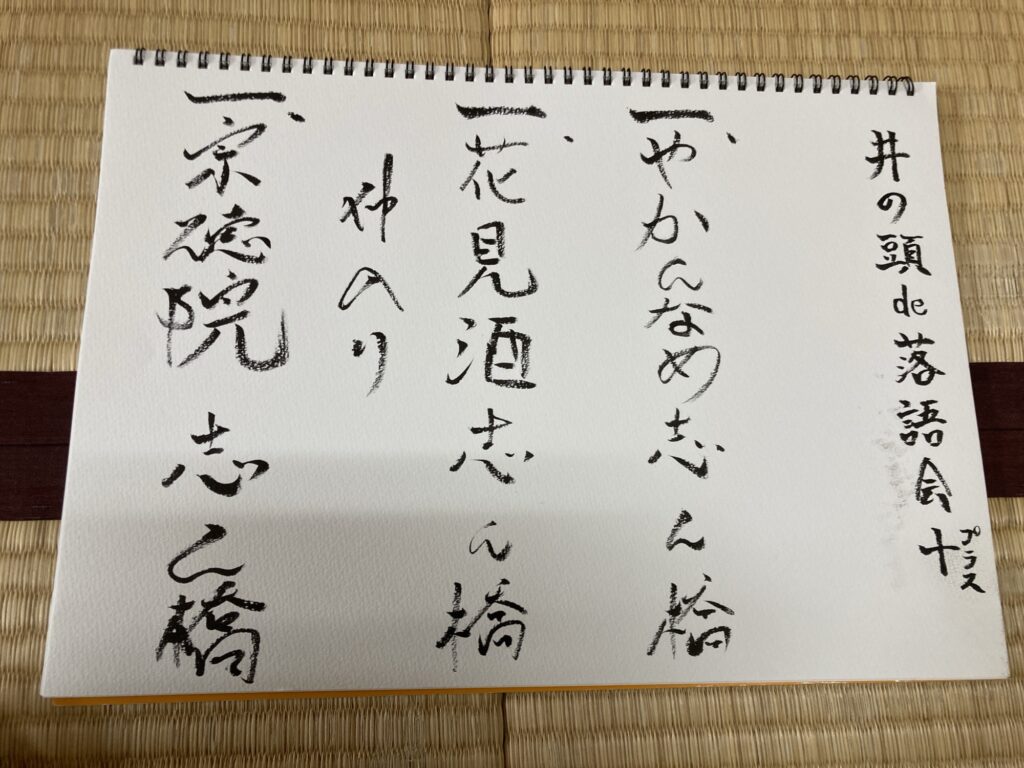 井の頭de落語会+プラス
一、やかんなめ 志ん橋
一、花見酒 志ん橋
仲入り
一、宗徳院 志ん橋